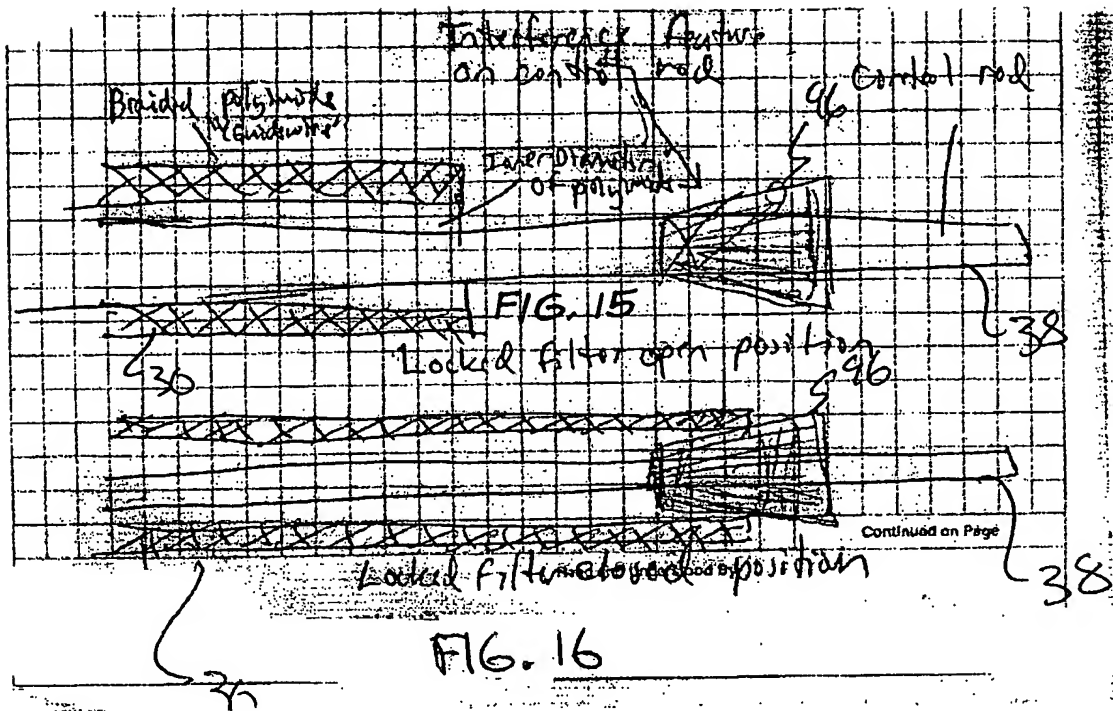 Interference feature
on control rod
Control rod
96
Braided polyimide
"Guidewire"
Inner Diameter
of polyimide
FIG. 15
38
Locked filter open position
36
96
Continued on Page
Locked filter closed position
38
FIG. 16
36